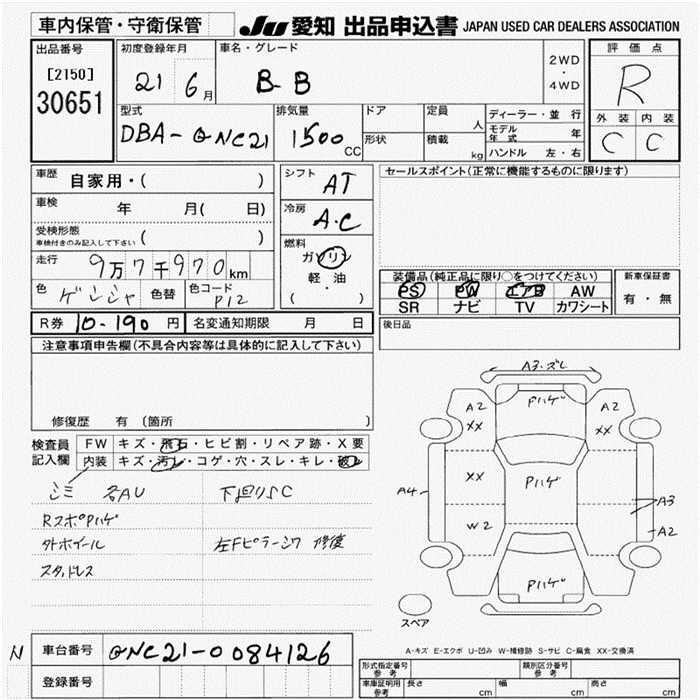 車内保管・守衛保管
JU 愛知 出品申込書 JAPAN USED CAR DEALERS ASSOCIATION
出品番号
[2150]
30651
初度登録年月
21 6月
車名・グレード
B-B
2WD
・
4WD
評価点
R
外装 内装
C C
型式
DBA-QNC21
排気量
1500cc
ドア
形状
定員
人
積載
kg
ディーラー・並行
モデル年式 年
ハンドル 左・右
車歴 自家用・( )
車検 年 月( 日)
受検形態
車検付きのみ記入して下さい ( )
走行 9万7千970km
色 色替 色コード P12
シフト AT
冷房 A・C
燃料
ガソリン
軽・油
( )
セールスポイント(正常に機能するものに限ります)
装備品(純正品に限り○をつけてください)
PS PW エアB AW
SR ナビ TV カワシート
新車保証書
有・無
R券 10-190円 名変通知期限 月 日
後日品
注意事項申告欄(不具合内容等は具体的に記入して下さい)
修復歴 有 〔箇所 〕
検査員記入欄
FW キズ・飛石・ヒビ割・リペア跡・X要
内装 キズ・汚レ・コゲ・穴・スレ・キレ・破レ
シミ 各AU 下回りSC
RスポPハゲ
外ホイール 左Fピラーシワ 修復
スタッドレス
A3・ズレ
A2 Pハゲ A2
XX XX
XX
A4 Pハゲ A3
W2
A2
Pハゲ
スペア
A-キズ E-エクボ U-凹み W-補修跡 S-サビ C-腐食 XX-交換済
N 車台番号 QNC21-0084126
登録番号
形式指定番号 参考
類別区分番号 参考
車庫証明用 参考 長さ cm 幅 cm 高さ cm